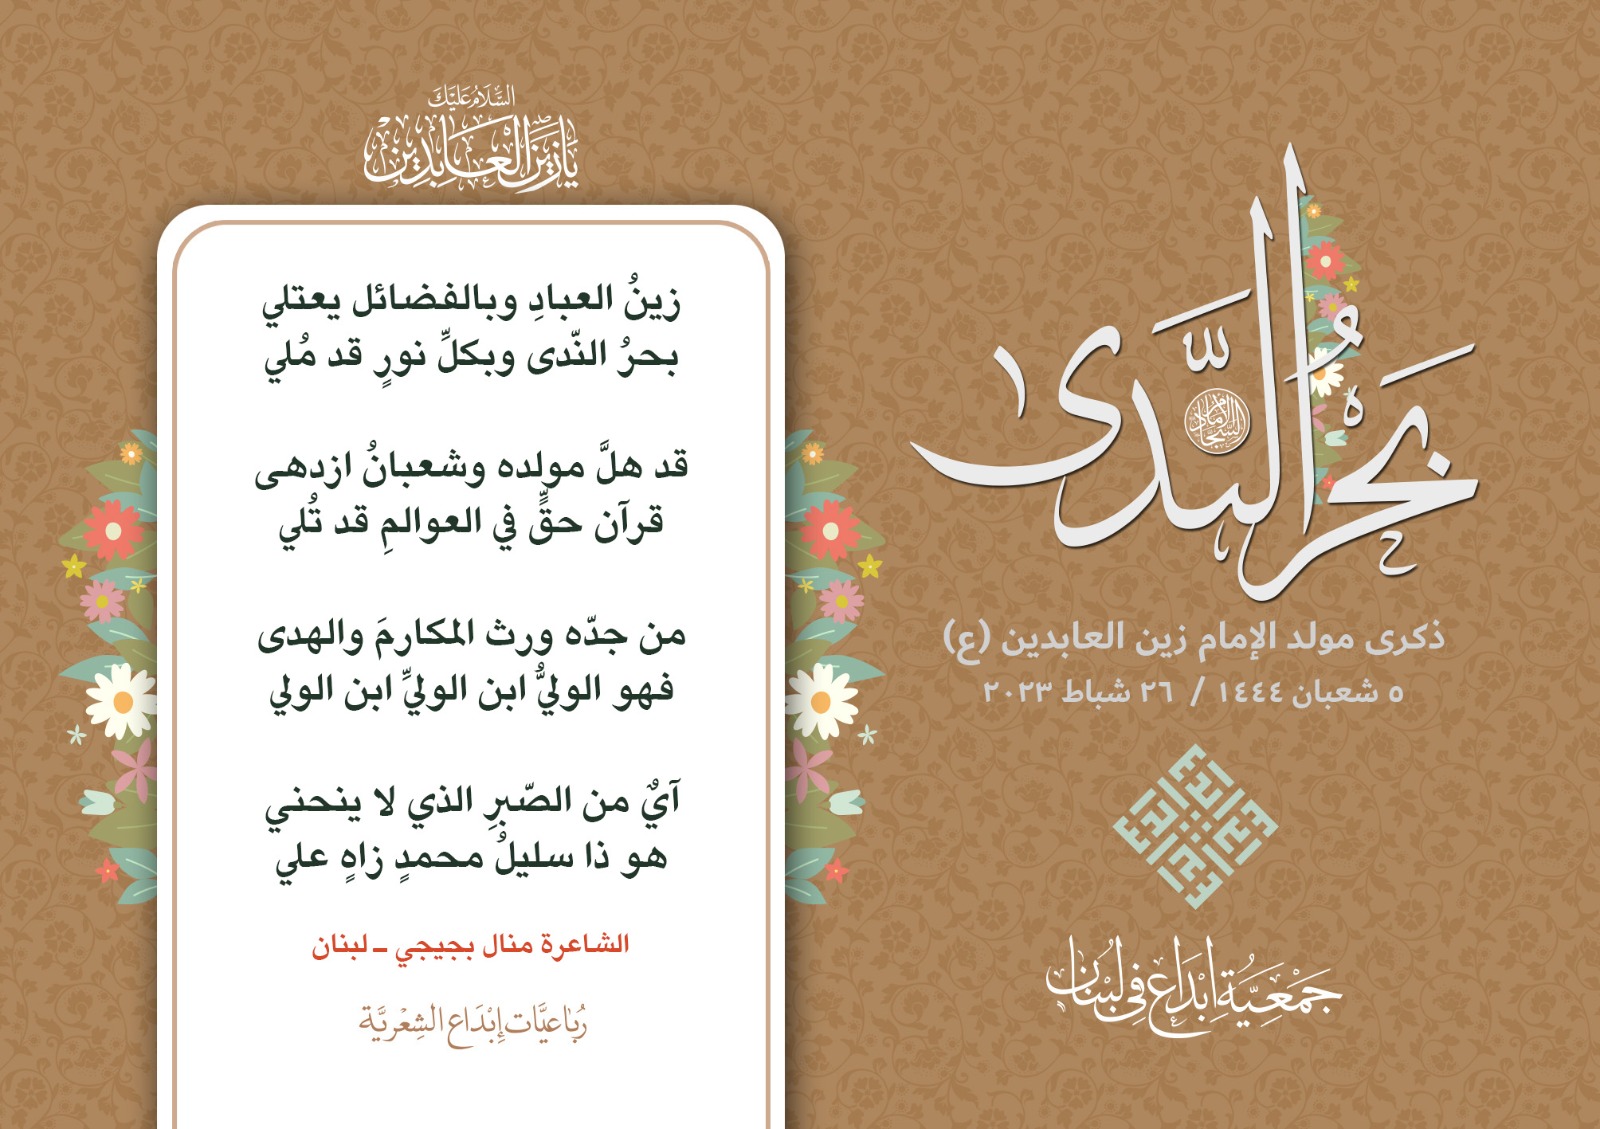 بَحْرُ النَّدى
الإمام السجاد
ذكرى مولد الإمام زين العابدين (ع)
٥ شعبان ١٤٤٤ / ٢٦ شباط ٢٠٢٣
جَمْعِيَّة إبْدَاع فِي لبْنَان
السَّلَامُ عَلَيْكَ
يَا زَيْنَ الْعَابِدِين
زينُ العبادِ وبالفضائل يعتلي
بحرُ النّدى وبكلِّ نورٍ قد مُلي
قد هلَّ مولده وشعبانُ ازدهى
قرآن حقٍّ في العوالمِ قد تُلي
من جدّه ورث المكارمَ والهدى
فهو الوليُّ ابن الوليِّ ابن الولي
آيٌ من الصّبرِ الذي لا ينحني
هو ذا سليلُ محمدٍ زاهٍ علي
الشاعرة منال بجيجي ـ لبنان
رُبَاعيَّات إبْدَاع الشِعْريَّة